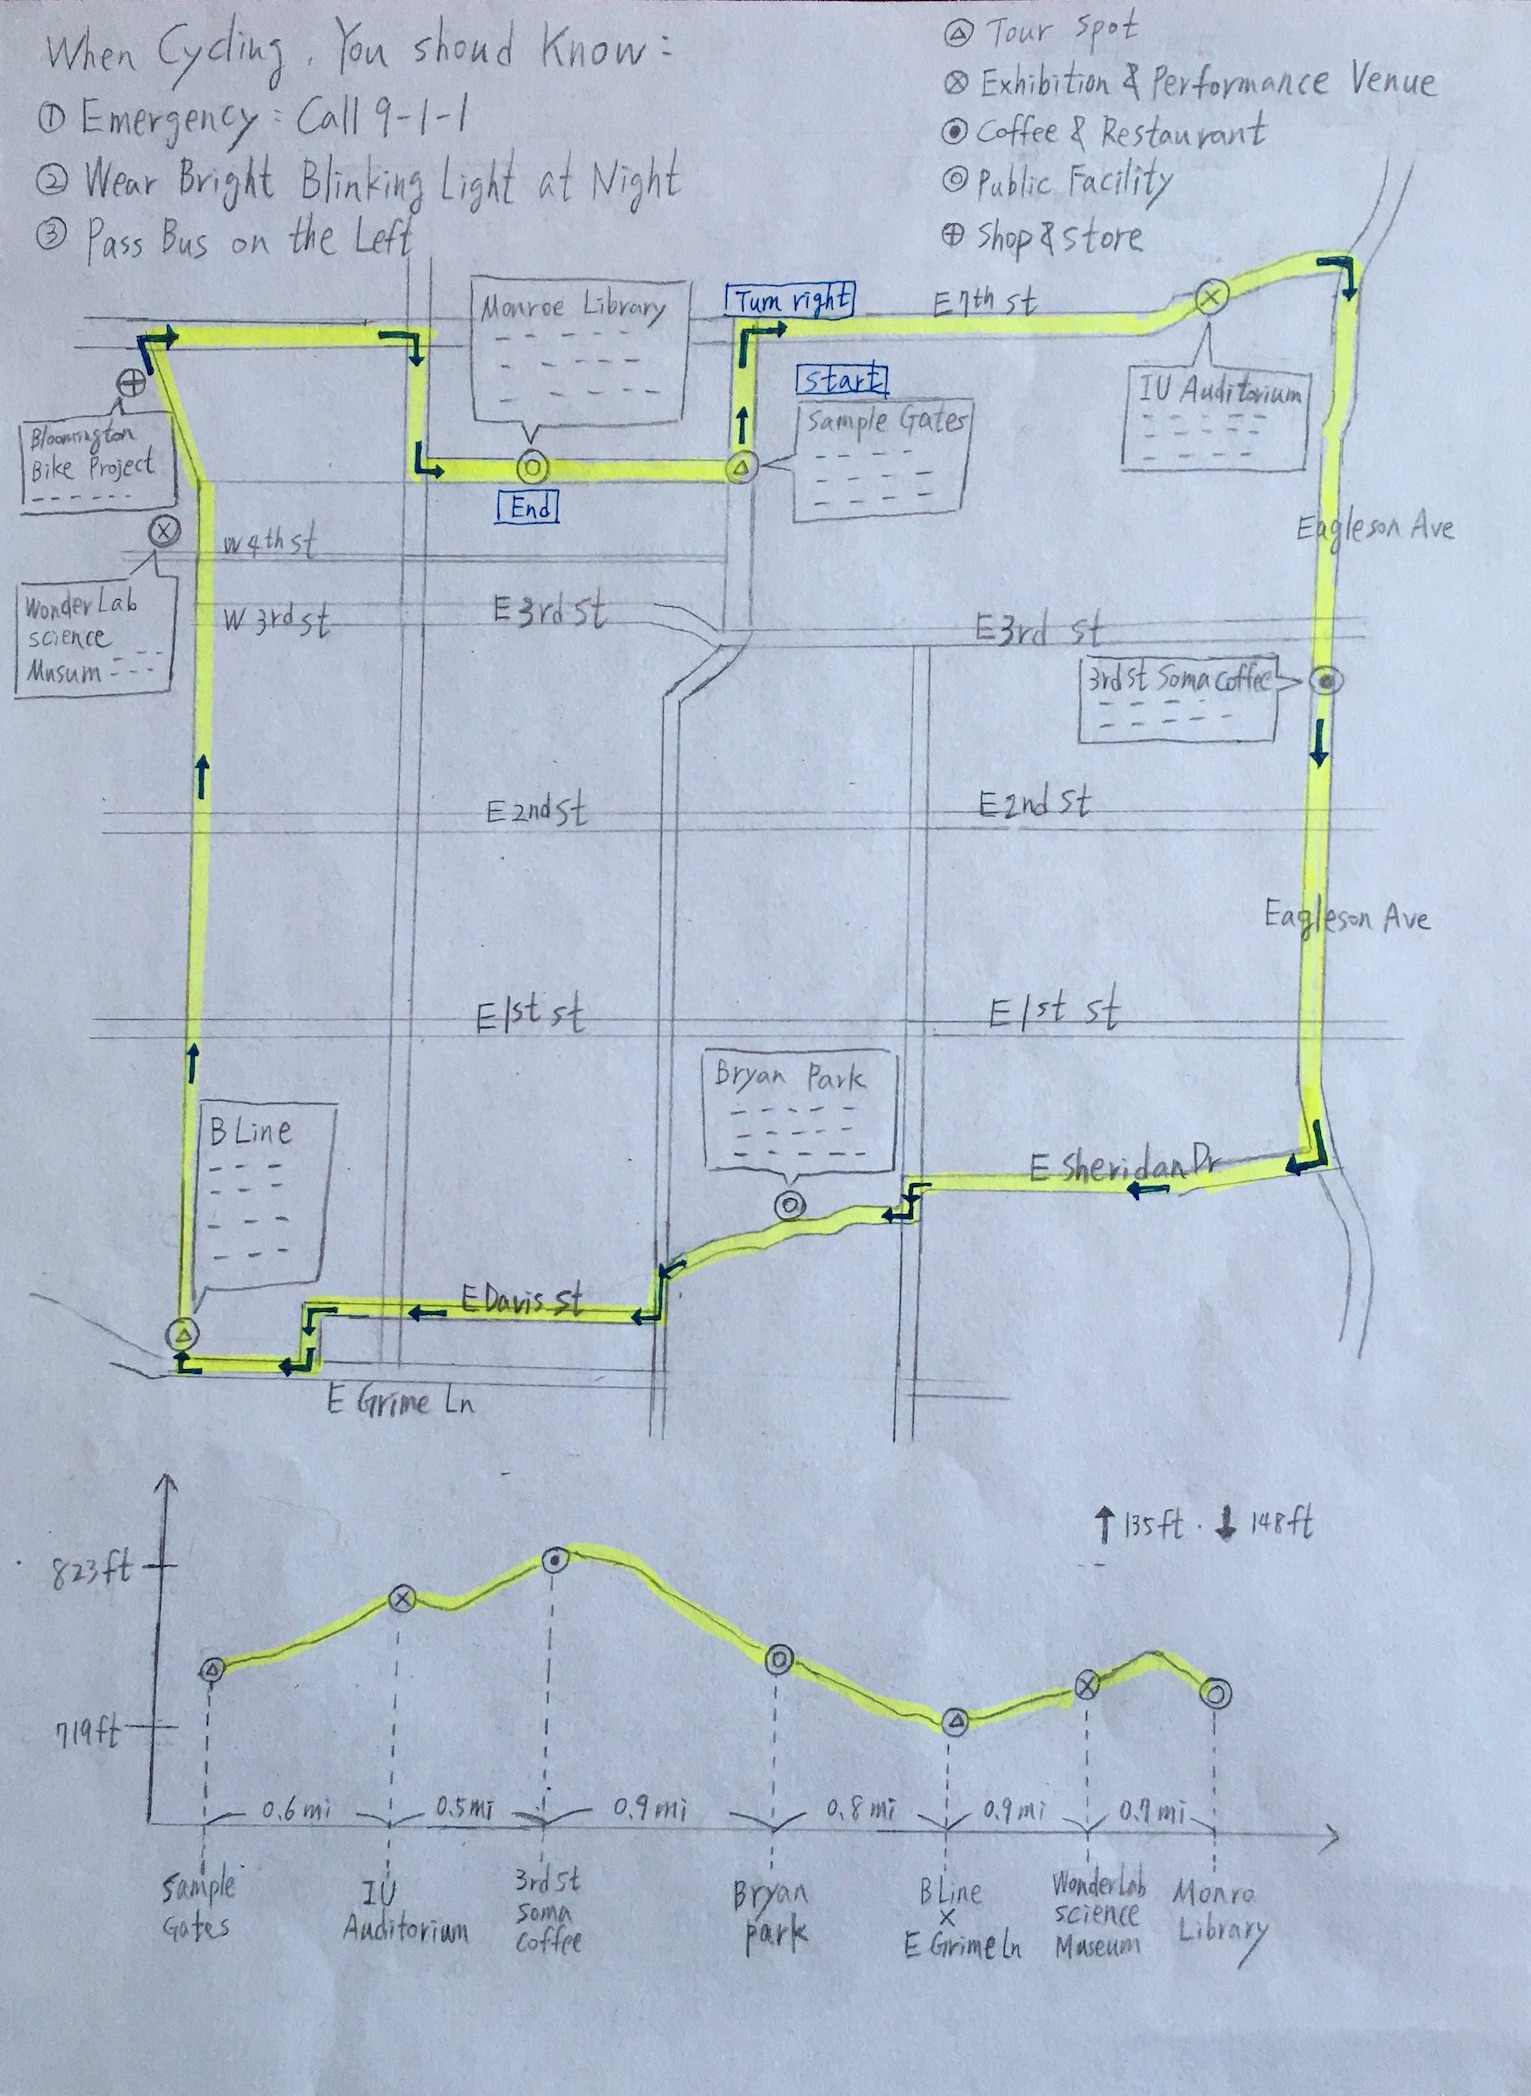 When Cycling, You shoud Know:
① Emergency: Call 9-1-1
② Wear Bright Blinking Light at Night
③ Pass Bus on the Left
Tour Spot
Exhibition & Performance Venue
Coffee & Restaurant
Public Facility
Shop & store
Monroe Library
Turn right
E 7th st
Start
Sample Gates
IU Auditorium
Bloomington
Bike Project
End
Eagleson Ave
W 4th st
Wonder Lab
science
Musum
W 3rd st
E 3rd St
E 3rd st
3rd st Soma coffee
E 2nd St
E 2nd St
Eagleson Ave
E 1st st
E 1st st
Bryan Park
B Line
E Sheridan Dr
E Davis St
E Grime Ln
↑ 135ft . ↓ 148ft
823ft
719ft
0.6 mi
0.5 mi
0.9 mi
0.8 mi
0.9 mi
0.7 mi
Sample
Gates
IU
Auditorium
3rd St
Soma
Coffee
Bryan
park
B Line
X
E Grime Ln
WonderLab
science
Museum
Monro
Library